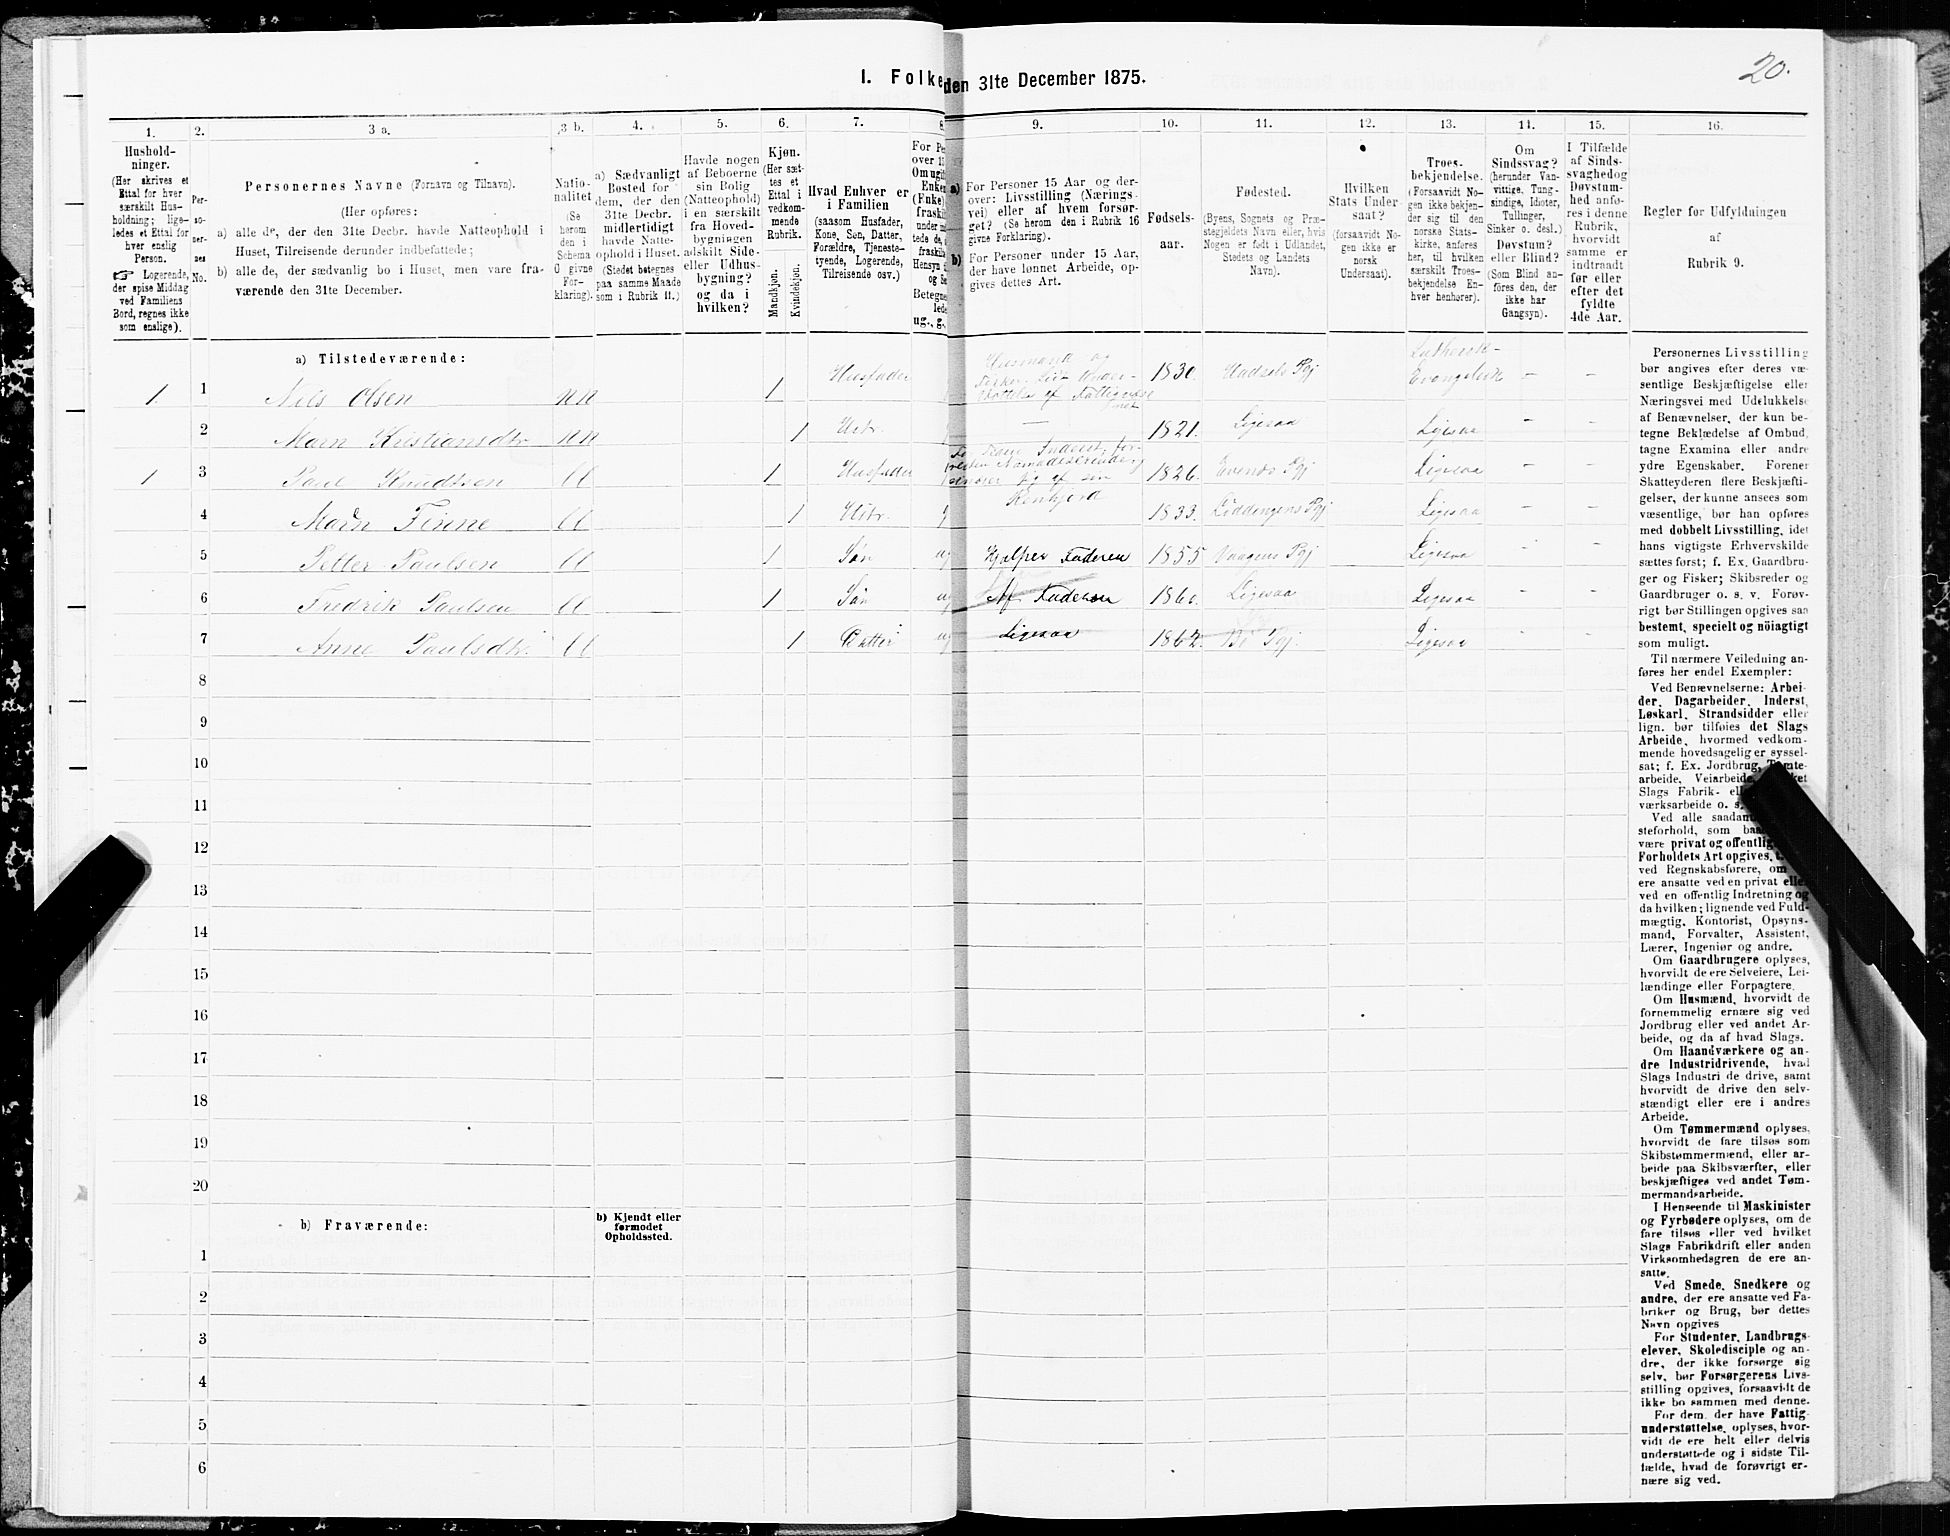 20.
I. Folke den 31te December 1875.
1. 2. 3 a. 3 b. 4. 5. 6. 7. 8. 9. 10. 11. 12. 13. 14. 15. 16.
Hushold-
ninger.
(Her skrives et
Ettal for hver
særskilt Hus-
holdning; lige-
ledes et Ettal for
hver enslig
Person.
☞ Logerende,
der spise Middag
ved Familiens
Bord, regnes ikke
som enslige).
Per-
so-
ner-
nes
No.
Personernes Navne (Fornavn og Tilnavn).
(Her opføres:
a) alle de, der den 31te Decbr. havde Natteophold i
Huset, Tilreisende derunder indbefattede;
b) alle de, der sædvanlig bo i Huset, men vare fra-
værende den 31te December.
Natio-
nalitet
(Se
herom
den i
Schema
O givne
For-
klaring).
a) Sædvanligt
Bosted for
dem, der den
31te Decbr.
midlertidigt
havde Natte-
ophold i Huset.
(Stedet betegnes
paa samme Maade
som i Rubrik 11.)
Havde nogen
af Beboerne
sin Bolig
(Natteophold)
i en særskilt
fra Hoved-
bygningen
adskilt Side-
eller Udhus-
bygning?
og da i
hvilken?
Kjøn.
(Her sæt-
tes et
Ettal i
vedkom-
mende
Rubrik.
Mandkjøn.
Kvindekjøn.
Hvad Enhver er
i Familien
(saasom Husfader,
Kone, Søn, Datter,
Forældre, Tjeneste-
tyende, Logerende,
Tilreisende osv.)
For Pe
over 1
Om ugif
Enken
(Fnke)
fraskil
under
tede de,
fraskil
Hensyn
og Se
Betegne
lede
ug., g.
a) For Personer 15 Aar og der-
over: Livsstilling (Nærings-
vei) eller af hvem forsør-
get? (Se herom den i Rubrik 16
givne Forklaring).
b) For Personer under 15 Aar,
der have lønnet Arbeide, op-
gives dettes Art.
Fødsels-
aar.
Fødested.
(Byens, Sognets og Præ-
stegjeldets Navn eller, hvis
Nogen er født i Udlandet,
Stedets og Landets
Navn).
Hvilken
Stats Under-
saat?
(forsaavidt No-
gen ikke er
norsk
Undersaat).
Troes-
bekjendelse.
(Forsaavidt No-
gen ikke bekjen-
der sig til den
norske Stats-
kirke, anføres
her, til hvilken
særskilt Troes-
bekjendelse En-
hver henhører).
Om
Sindssvag?
(herunder Van-
vittige, Tung-
sindige, Idioter,
Tullinger,
Sinker o. desl.)
Døvstum?
eller Blind?
(Som Blind an-
føres den, der
ikke har
Gangsyn).
I Tilfælde
af Sinds-
svaghed og
Døvstum-
hed anfø-
res i denne
Rubrik,
hvorvidt
samme er
indtraadt
før eller
efter det
fyldte
4de Aar.
Regler før Udfyldningen
af
Rubrik 9.
a) Tilstedeværende:
1 1 Nils Olsen nn 1 Husfader Husmand og 1830 Hadsels Pgj Luthersk- Evangelisk - -
2 Marn Kristiansdtr nn 1 Hstr. - 1821. Ligesaa Ligesaa - -
1 3 Paul Knudtsen ll 1 Husfader 1826. Evends Pgj Ligesaa - -
4 Marn Finne ll 1 Hstr. 1833. Liddingens Pgj Ligesaa
5 Petter Paulsen ll 1 Søn ug Hjælper Faderen 1855 Vaagens Pgj Ligesaa - -
6 Fredrik Paulsen ll 1 Søn ug Af Faderen 1860. Ligesaa Ligesaa - -
7 Anne Paulsdtr. ll 1 Datter ug Ligesaa 1862. Bø Pgj. Ligesaa - -
8
9
10
11
12
13
14
15
16
17
18
19
20
b) Fraværende:
b) Kjendt eller
førmodet
Opholdssted.
1
2
3
4
5
6
Personernes Livsstilling
bør angives efter deres væ-
sentlige Beskjæftigelse eller
Næringsvei med Udelukkelse
af Benævnelser, der kun be-
tegne Beklædelse af Ombud,
tagne Examina eller andre
ydre Egenskaber. Forener
Skatteyderen flere Beskjæfti-
gelser, der kunne ansees som
væsentlige, bør han opføres
med dobbelt Livsstilling, idet
hans vigtigste Erhvervskilde
sættes først; f. Ex. Gaardbru-
ger og Fisker; Skibsreder og
Gaardbruger o. s. v. Forøv-
rigt bør Stillingen opgives saa
bestemt, specielt og nöiagtigt
som muligt.
Til nærmere Veiledning an-
føres her endel Exempler:
Ved Benævnelserne: Arbei-
der, Dagarbeider, Inderst,
Løskarl, Strandsidder eller
lign. bør tilføies det Slags
Arbeide, hvormed vedkom-
mende hovedsagelig er syssel-
sat; f. Ex. Jordbrug, Tomte-
arbeide, Veiarbeide,
Slags Fabrik-
værksarbeide o. s.
Ved alle saadan
steforhold, som
være privat og offentlig
Forholdets Art opgives,
ved Regnskabsførere, om
ere ansatte ved en privat eller
ved en offentlig Indretning og
da hvilken; lignende ved Fuld-
mægtig, Kontorist, Opsyns-
mand, Forvalter, Assistent,
Lærer, Ingeniør og andre.
Om Gaardbrugere oplyses,
hvorvidt de ere Selveiere, Lei-
lændinge eller Forpagtere.
Om Husmænd, hvorvidt de
fornemmelig ernære sig ved
Jordbrug eller ved andet Ar-
beide, og da af hvad Slags.
Om Haandværkere og an-
dre Industridrivende, hvad
Slags Industri de drive, samt
hvorvidt de drive den selv-
stændigt eller ere i andres
Arbeide.
Om Tømmermænd oplyses,
hvorvidt de fare tilsøs som
Skibstømmermænd, eller ar-
beide paa Skibsværfter, eller
beskjæftiges ved andet Tøm-
mermandsarbeide.
I Henseende til Maskinister
og Fyrbødere oplyses, om de
fare tilsøs eller ved hvilket
Slags Fabrikdrift eller anden
Virksomhedsgren de ere an-
satte.
Ved Smede, Snedkere og
andre, der ere ansatte ved Fa-
briker og Brug, bør dettes
Navn opgives
For Studenter, Landbrugs-
elever, Skoledisciple og an-
dre, der ikke forsørge sig
selv, bør Forsørgerens Livs-
stilling opgives, forsaavidt de
ikke bo sammen med denne.
For dem. der have Fattig-
understøttelse, oplyses, hvor-
vidt de ere helt eller delvis
understøttede og i sidste Til-
fælde, hvad de forøvrigt er-
nære sig ved.